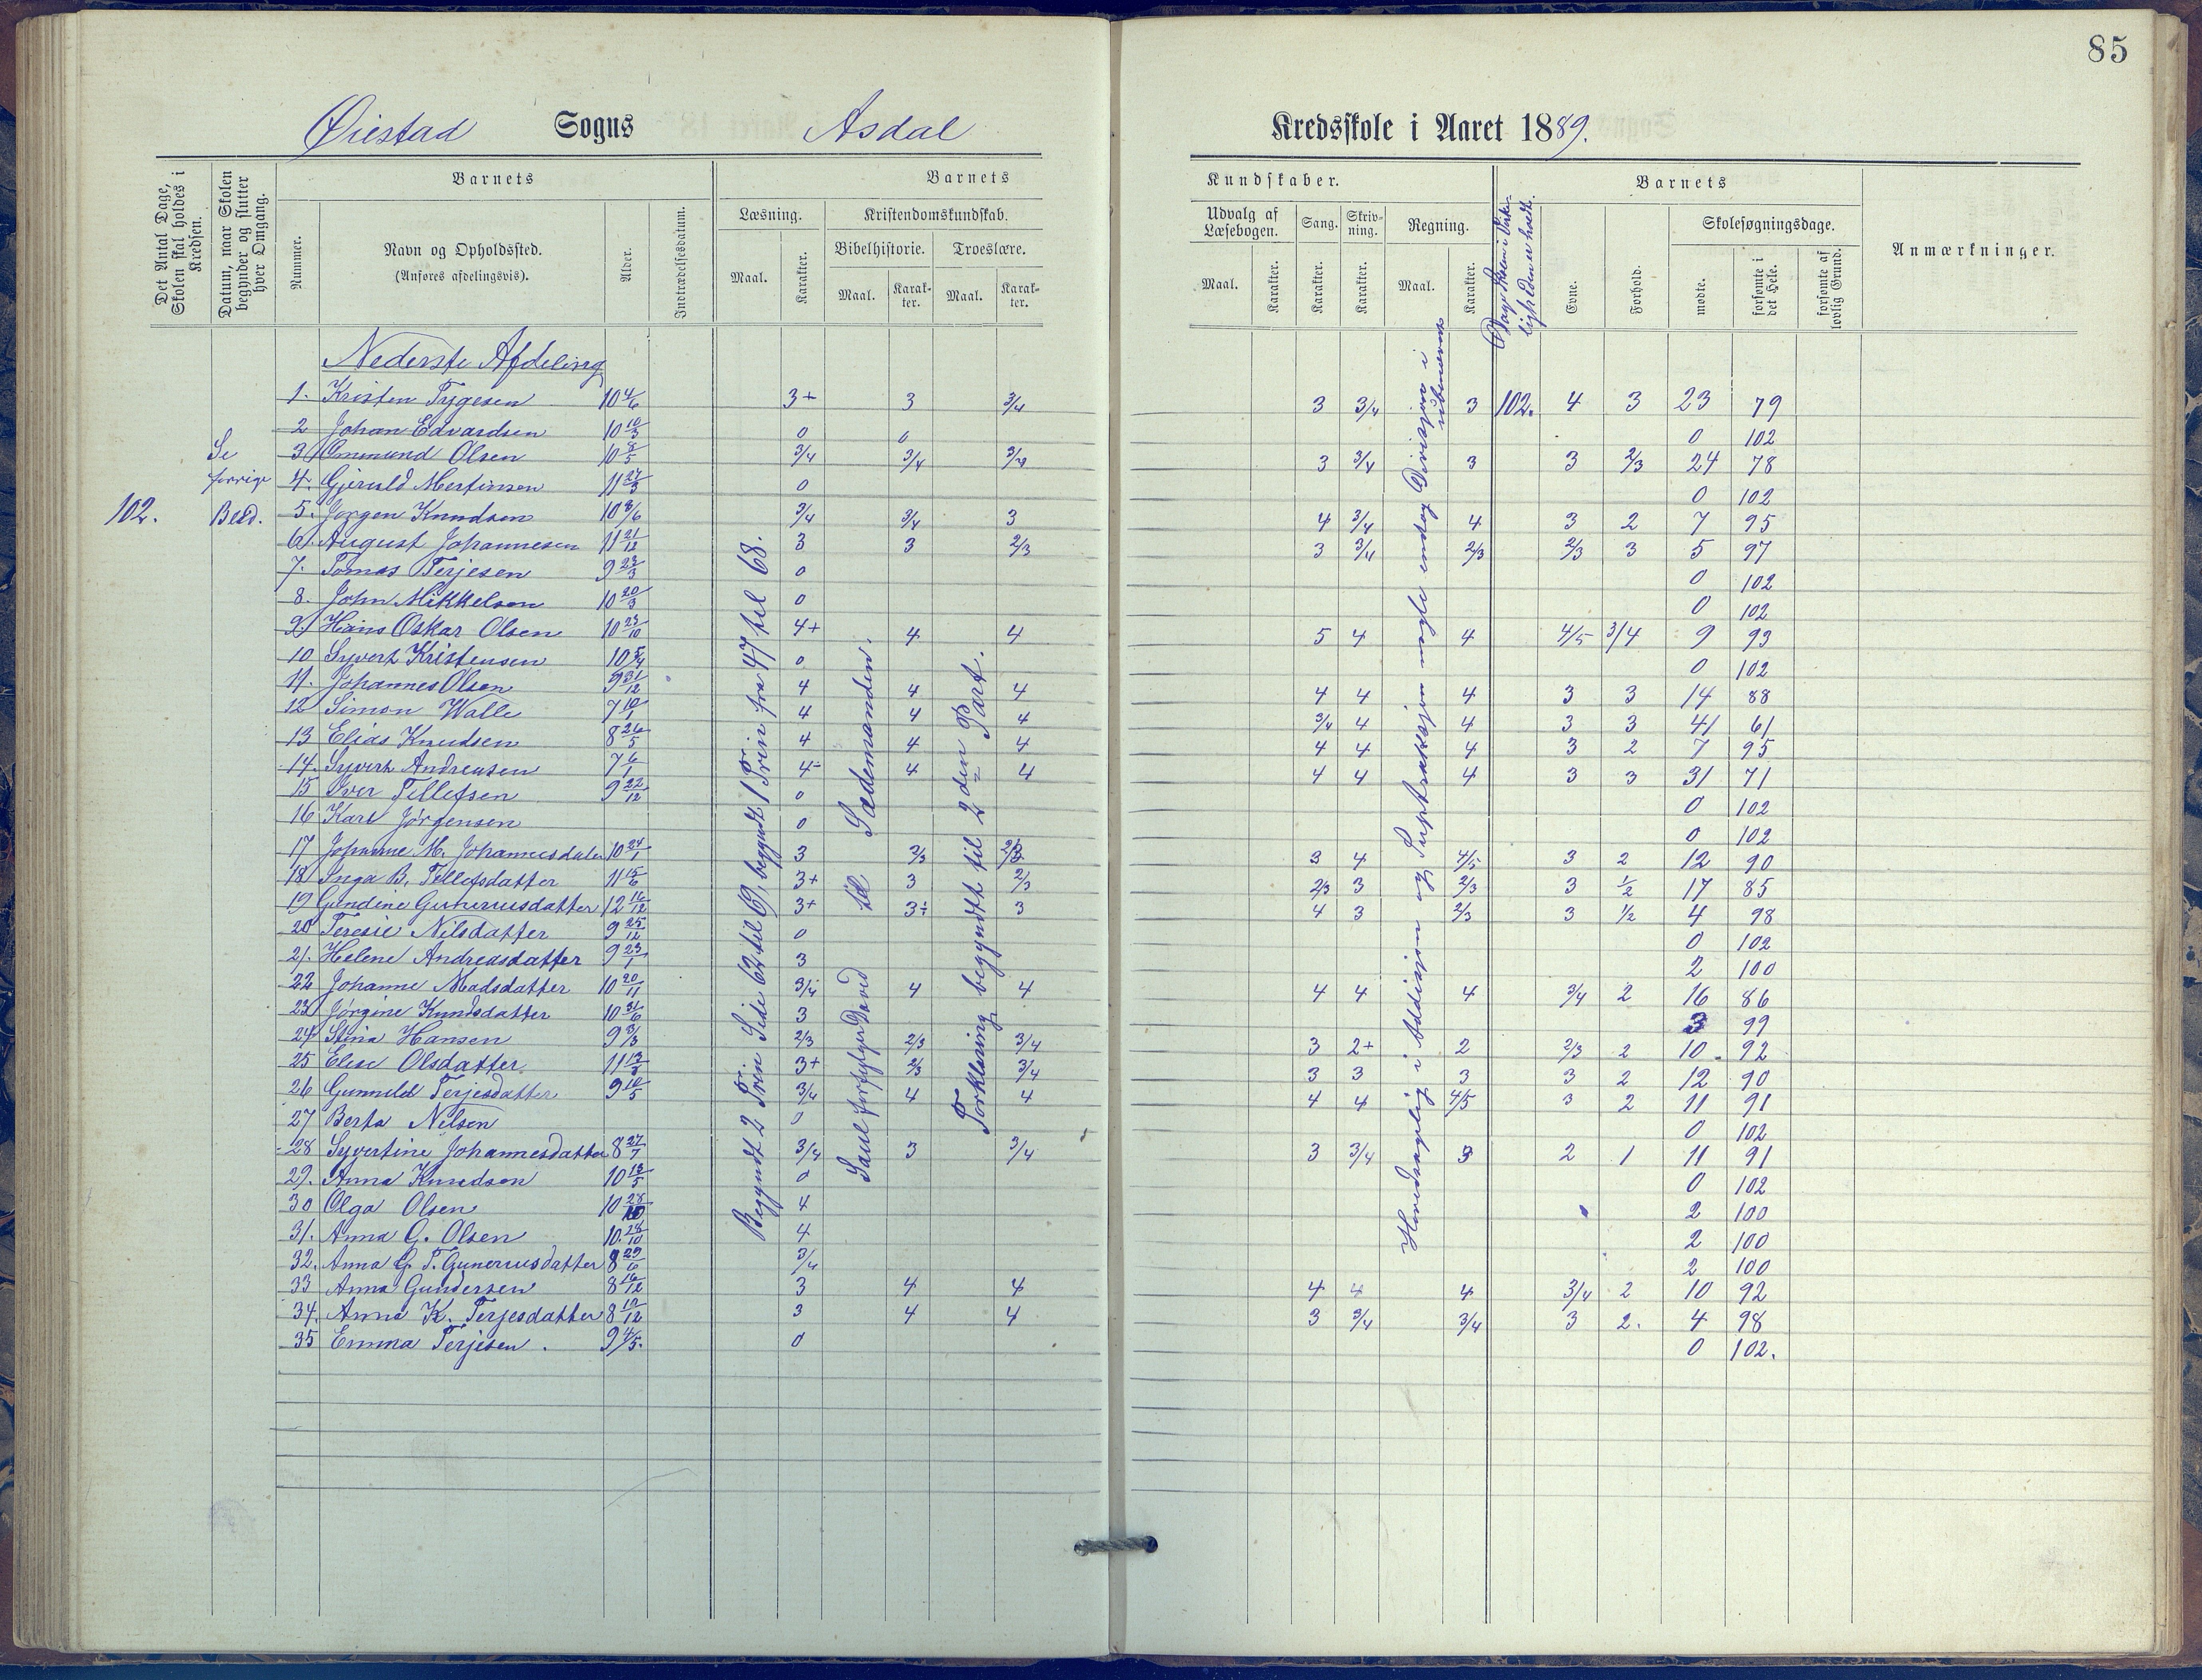 85
Øiestad Sogns Asdal Kredsskole i Aaret 1889.
Det Antal Dage, Skolen skal holdes i Kredsen.
Datum, naar Skolen begynder og slutter hver Omgang.
Barnets
Nummer.
Navn og Opholdssted.
(Anføres afdelingsvis).
Alder.
Indtrædelsesdatum.
Barnets Kundskaber.
Læsning.
Maal.
Karakter.
Kristendomskundskab.
Bibelhistorie.
Maal.
Karakter.
Troeslære.
Maal.
Karakter.
Udvalg af Læsebogen.
Maal.
Karakter.
Sang.
Karakter.
Skrivning.
Karakter.
Regning.
Maal.
Karakter.
Barnets
Evne.
Forhold.
Skolesøgningsdage.
mødte.
forsømte i det Hele.
forsømte af lovlig Grund.
Anmærkninger.
102.
Se
forrige
Blad.
Begyndt 2 Trin Side 62 til 69, begyndt 1 Trin fra 47 til 68.
Saul forfølger David til Sædemanden.
Forklaring begyndt til 2den Part.
Hovedsagelig i Addisjon og Suptraksjon nogle endog Divisjon i
Nederste Afdeling
1. Kristen Tygesen 10 4/6 3+ 3 3/4 3 3/4 3 102. 4 3 23 79
2 Johan Edvardsen 10 10/3 0 0 0 102
3 Ommund Olsen 10 8/5 3/4 3/4 3/4 3 3/4 3 3 2/3 24 78
4. Gjeruld Mertinsen 11 27/3 0 0 102
5. Jørgen Knudsen 10 3/6 3/4 3/4 3 4 3/4 4 3 2 7 95
6. August Johannesen 11 21/12 3 3 2/3 3 3/4 2/3 2/3 3 5 97
7. Tomas Terjesen 9 23/3 0 0 102
8. John Mikkelsen 10 20/3 0 0 102
9. Hans Oskar Olsen 10 23/10 4+ 4 4 5 4 4 4/5 3/4 9 93
10 Syvert Kristensen 10 5/4 0 0 102
11. Johannes Olsen 9 31/12 4 4 4 4 4 4 3 3 14 88
12 Simon Walle 7 10/1 4 4 4 3/4 4 4 3 3 41 61
13 Elias Knudsen 8 26/5 4 4 4 4 4 4 3 2 7 95
14. Syvert Andreasen 7 6/1 4- 4 4 4 4 4 3 3 31 71
15 Iver Tellefsen 9 22/12 0 0 102
16 Karl Jørgensen 0 0 102
17 Johanne M. Johannesdater 10 24/1 3 2/3 2/3 3 4 4/5 3 2 12 90
18 Inga B. Tellefsdatter 11 15/6 3+ 3 2/3 2/3 3 2/3 3 1/2 17 85
19 Gundine Gunerusdatter 12 16/12 3+ 3÷ 3 4 3 2/3 3 1/2 4 98
20 Teresie Nilsdatter 9 25/12 0 0 102
21. Helene Andreasdatter 9 23/1 3 2 100
22 Johanne Madsdatter 10 20/11 3/4 4 4 4 4 4 3/4 2 16 86
23 Jørgine Knudsdatter 10 31/6 3 3 99
24 Stina Hansen 9 3/3 2/3 2/3 3/4 3 2+ 2 2/3 2 10 92
25 Elise Olsdatter 11 13/8 3+ 2/3 3/4 3 3 3 3 2 12 90
26 Gunnild Terjesdatter 9 10/5 3/4 4 4 4 4 4/5 3 2 11 91
27 Berta Nilsen 0 0 102
28 Syvertine Johannesdatter 8 27/7 3/4 3 3/4 3 3/4 3 2 1 11 91
29. Anna Knudsen 10 13/5 0 0 102
30 Olga Olsen 10 28/10 4 2 100
31. Anna G. Olsen 10 28/10 4 2 100
32. Anna G. T. Gunerusdatter 8 29/6 3/4 2 100
33 Anna Gundersen 8 16/12 3 4 4 4 4 4 3/4 2 10 92
34. Anna K. Terjesdatter 8 10/12 3 4 4 3 3/4 3/4 3 2. 4 98
35 Emma Terjesen. 9 4/5. 0 0 102.